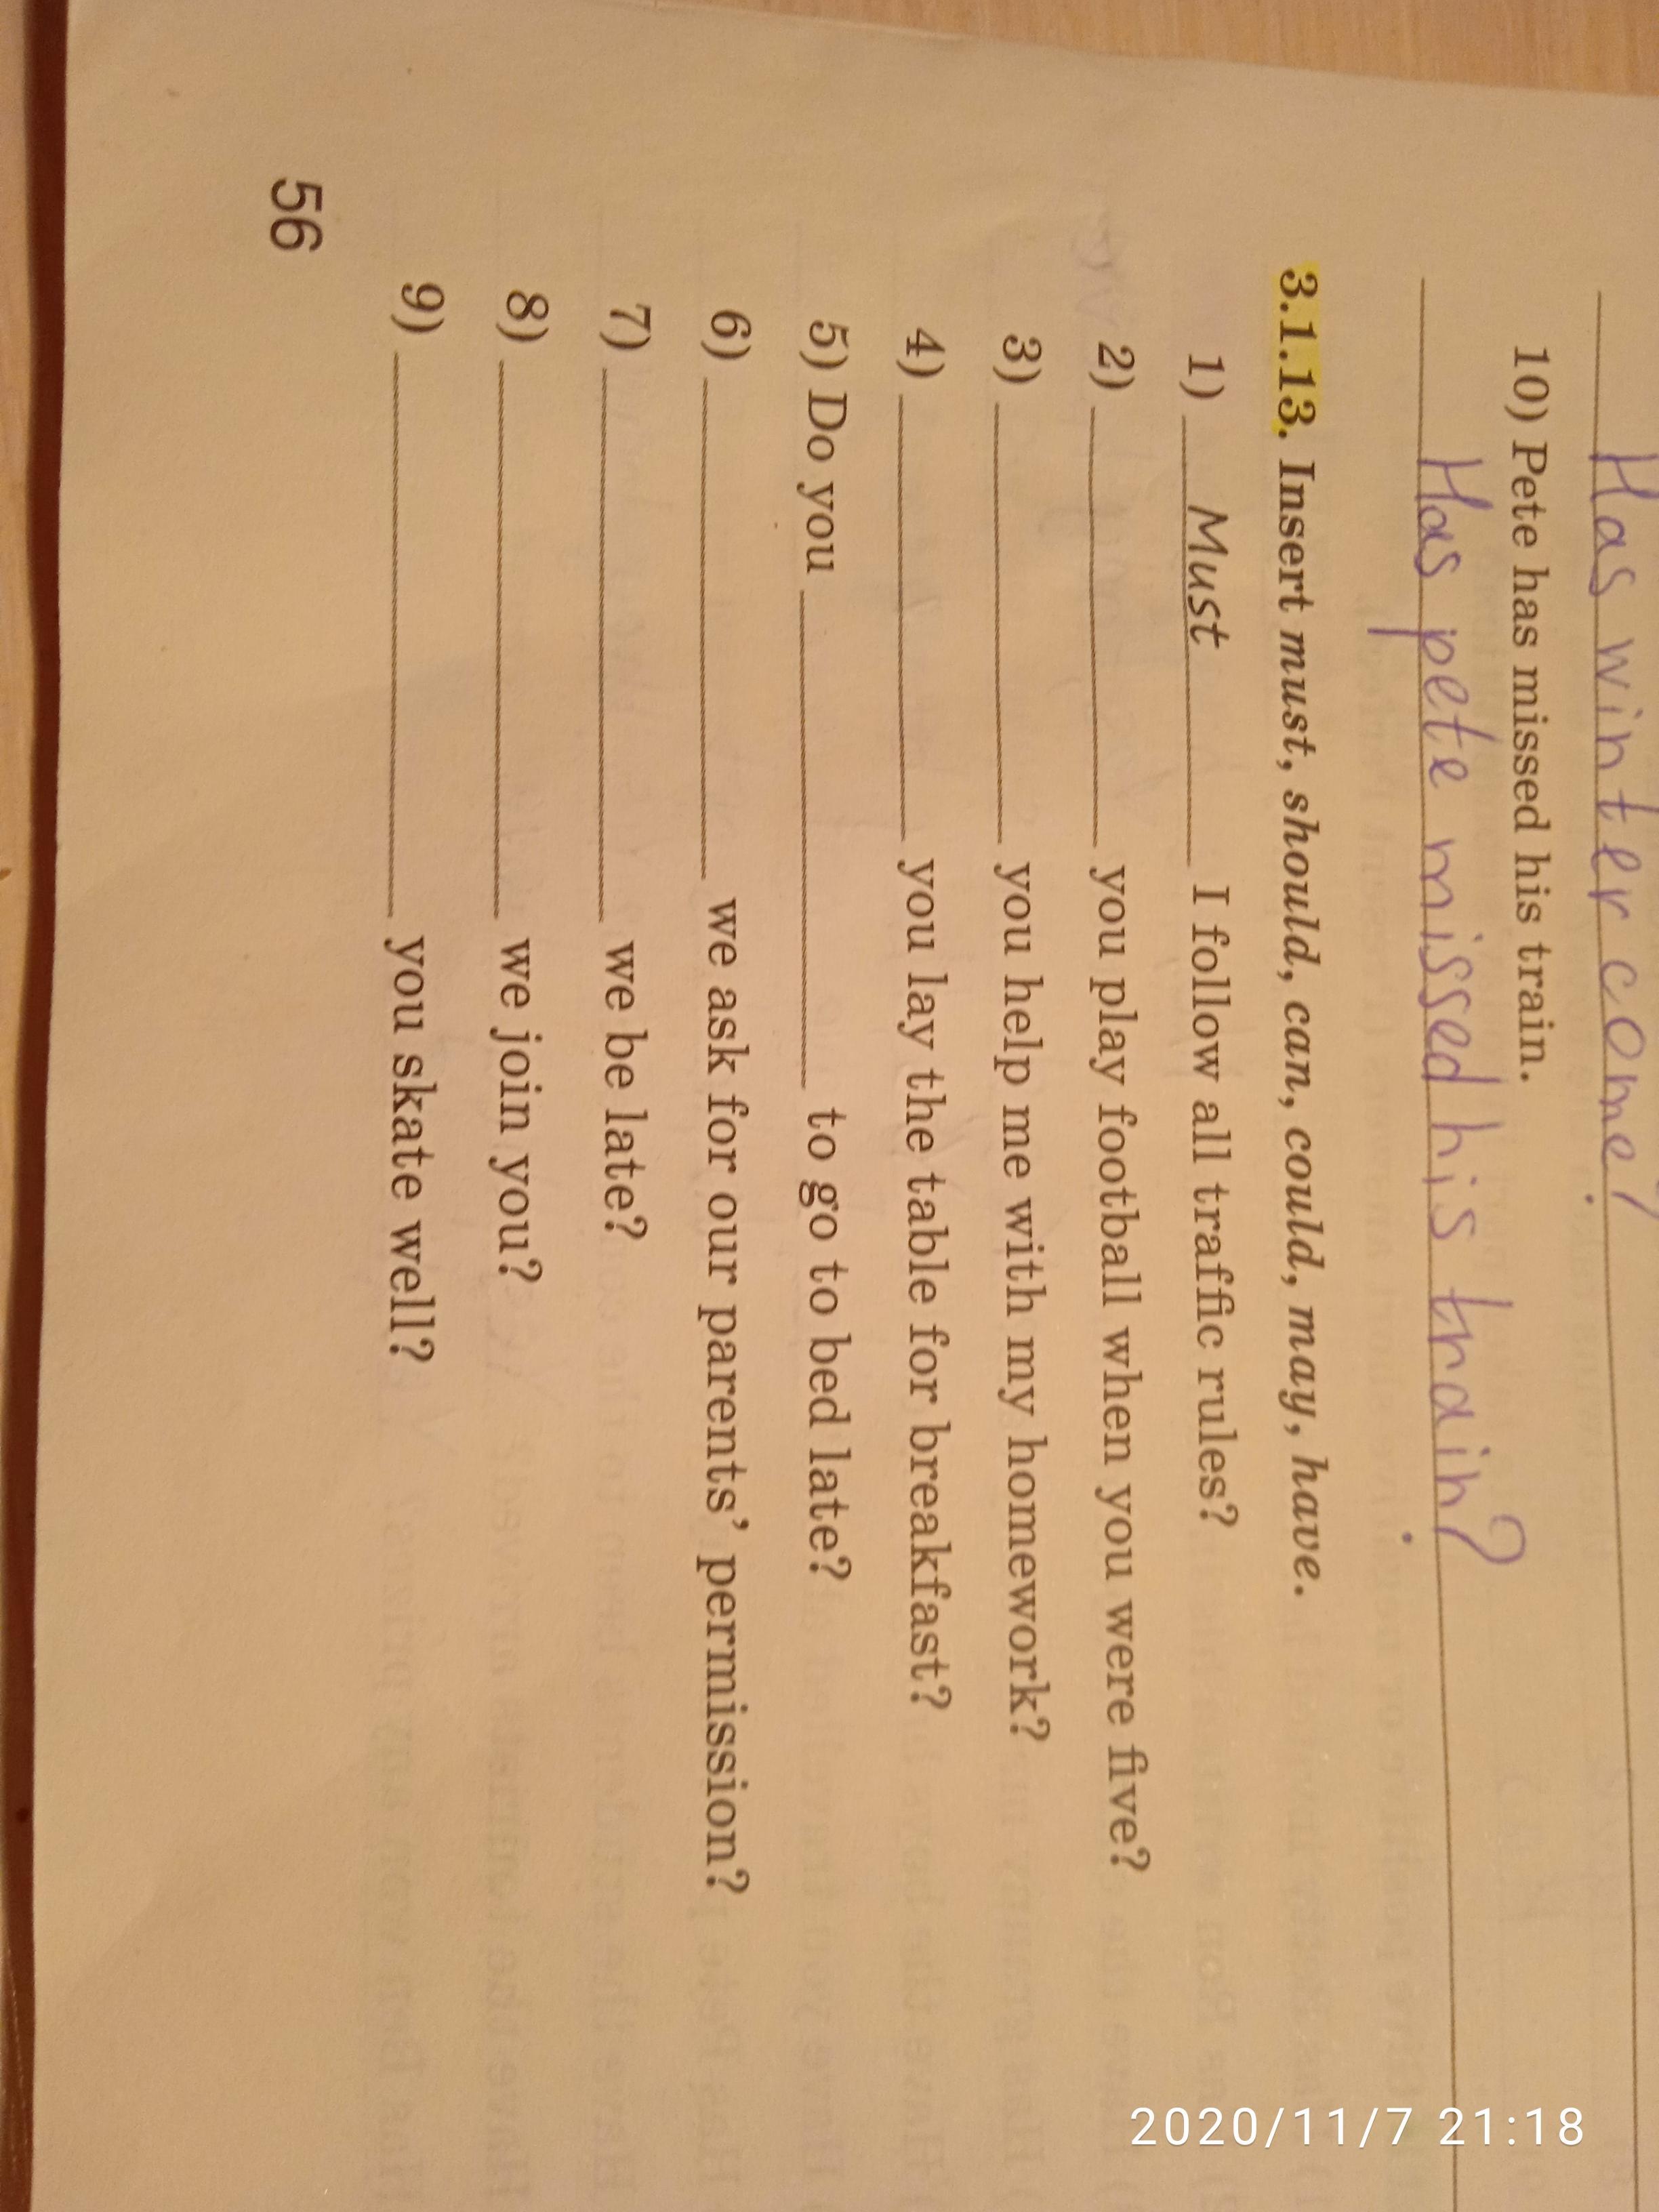 Has winter come?
10) Pete has missed his train.
Has pete missed his train?
3.1.13. Insert must, should, can, could, may, have.
1) Must I follow all traffic rules?
2) you play football when you were five?
3) you help me with my homework?
4) you lay the table for breakfast?
5) Do you to go to bed late?
6) we ask for our parents' permission?
7) we be late?
8) we join you?
9) you skate well?
56
2020/11/7 21:18